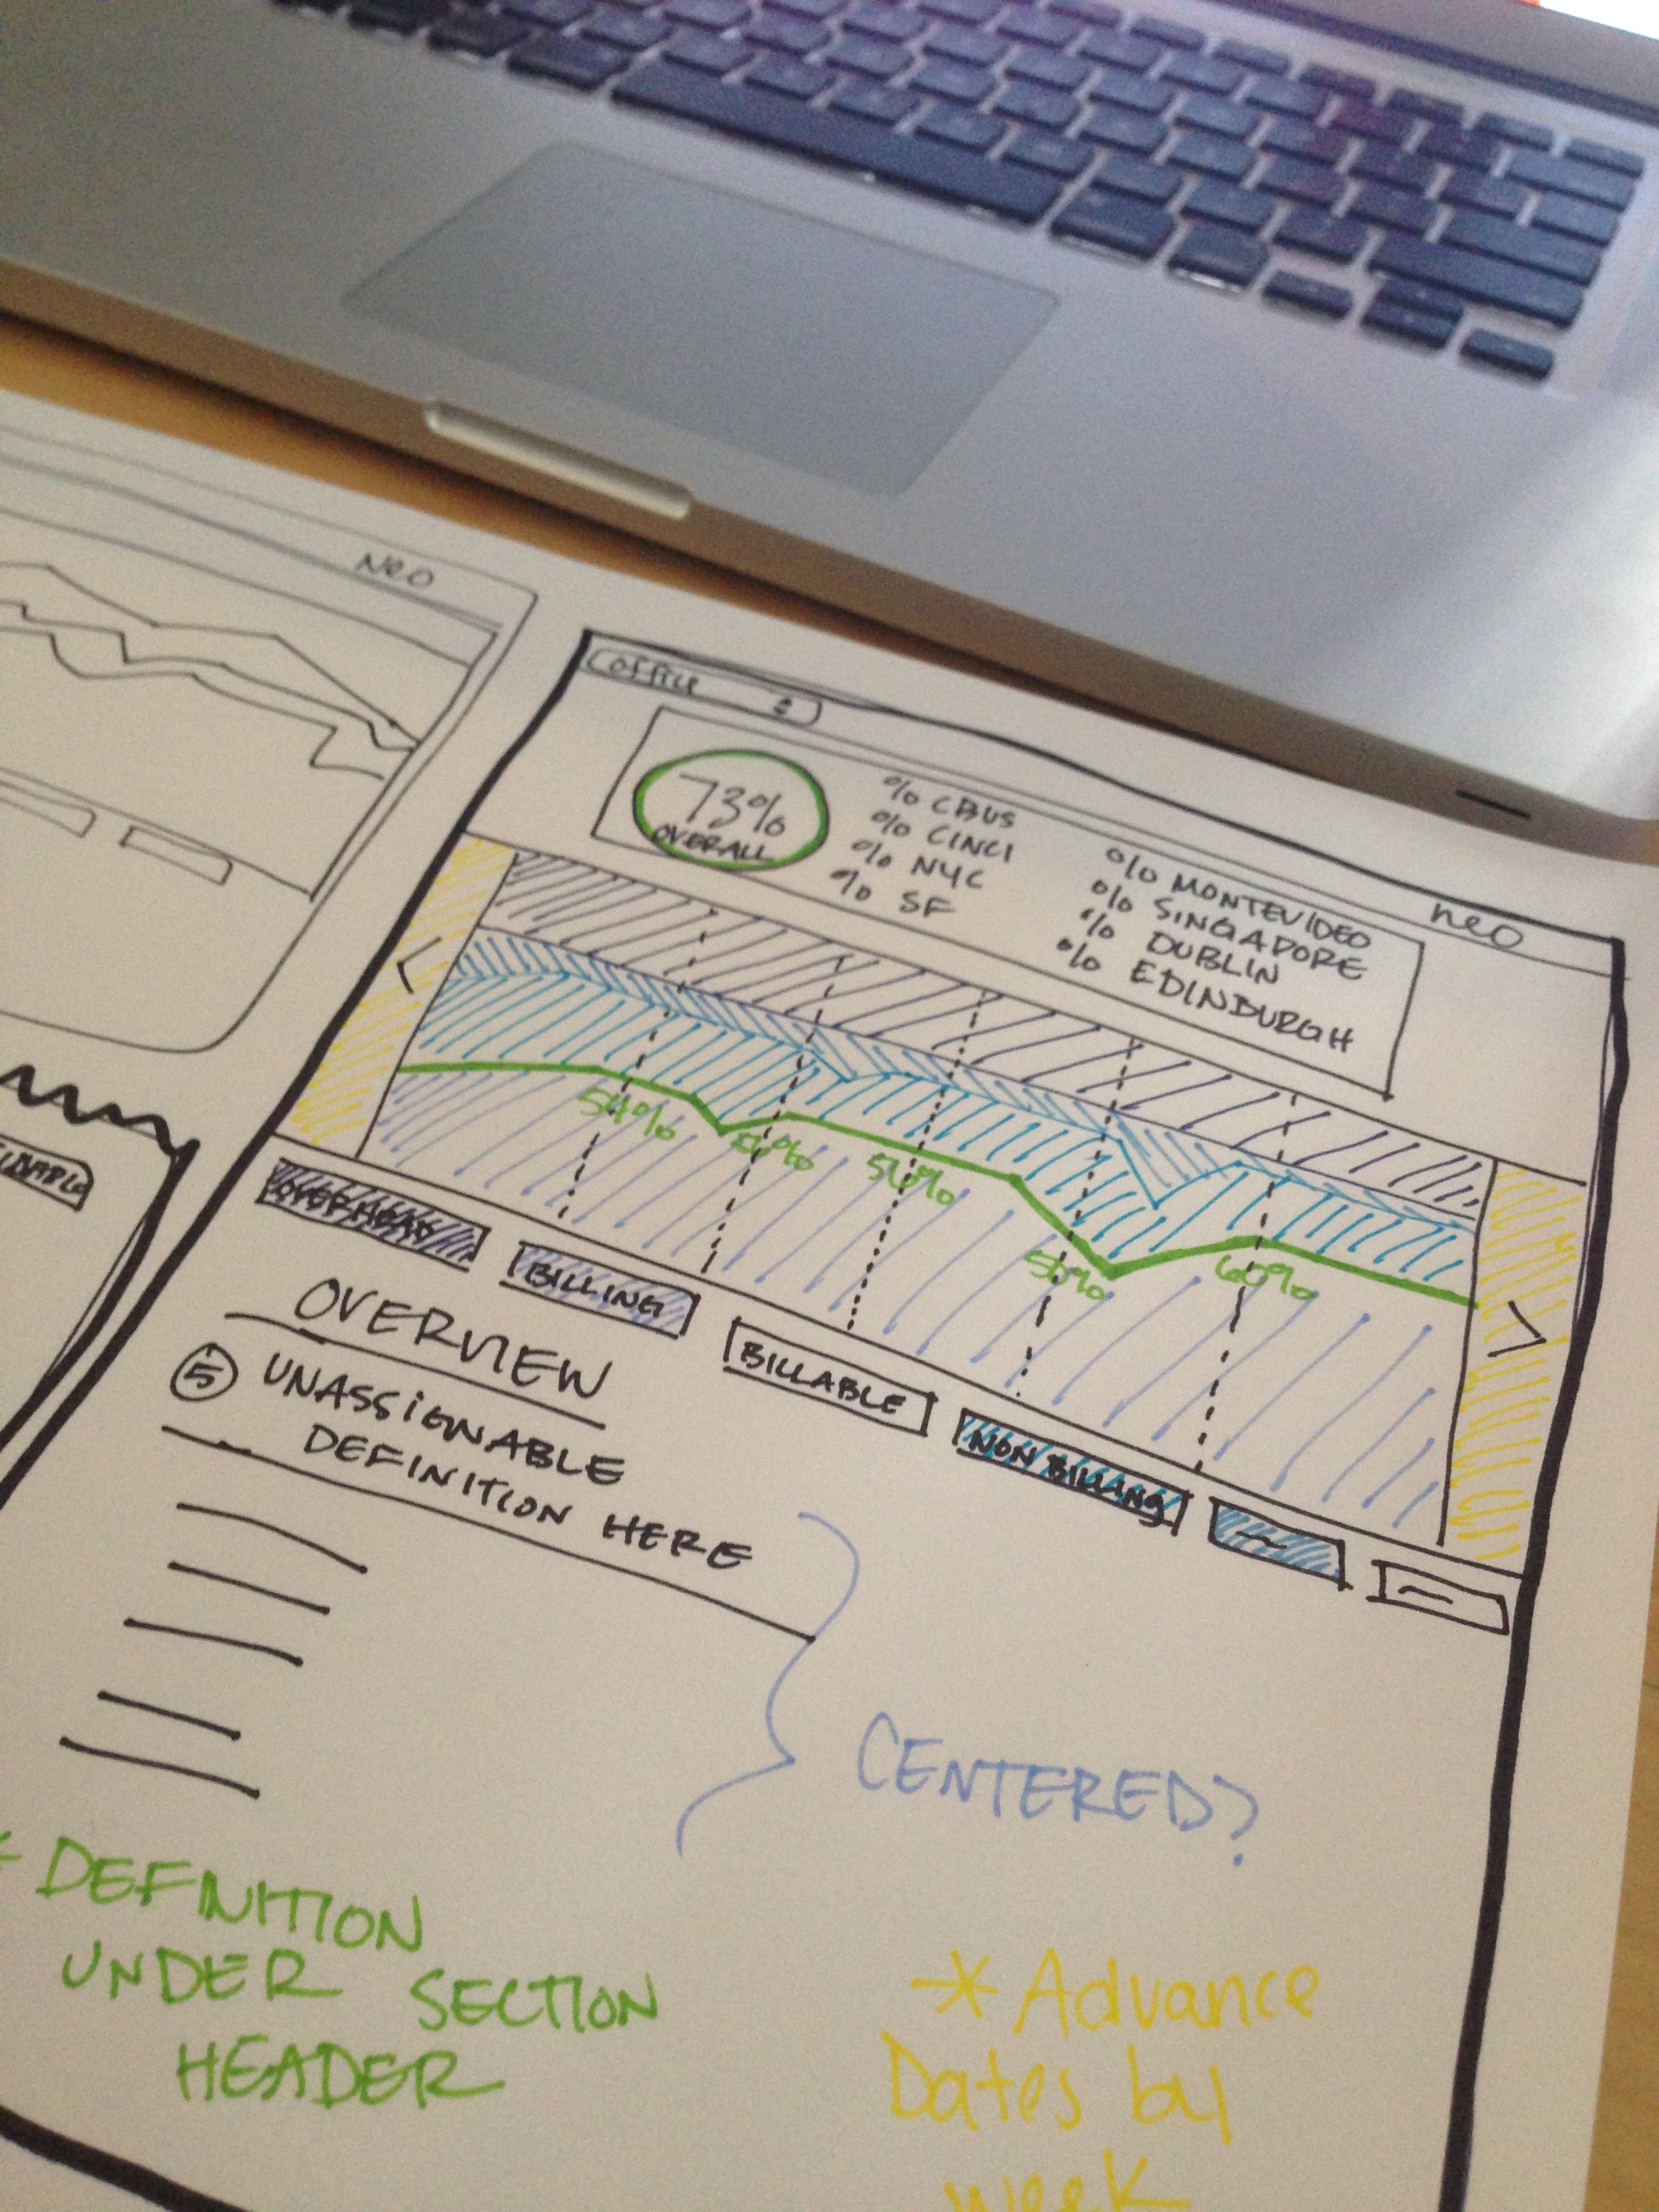 Neo
OFFICE
neo
73%
OVERALL
% CBUS
% CINCI
% NYC
% SF
% MONTEVIDEO
% SINGAPORE
% DUBLIN
% EDINBURGH
<
54%
56%
50%
60%
>
OVERHEAD
BILLING
BILLABLE
NON BILLING
OVERVIEW
5 UNASSIGNABLE
DEFINITION HERE
CENTERED?
DEFINITION
UNDER SECTION
HEADER
* Advance
Dates by
week